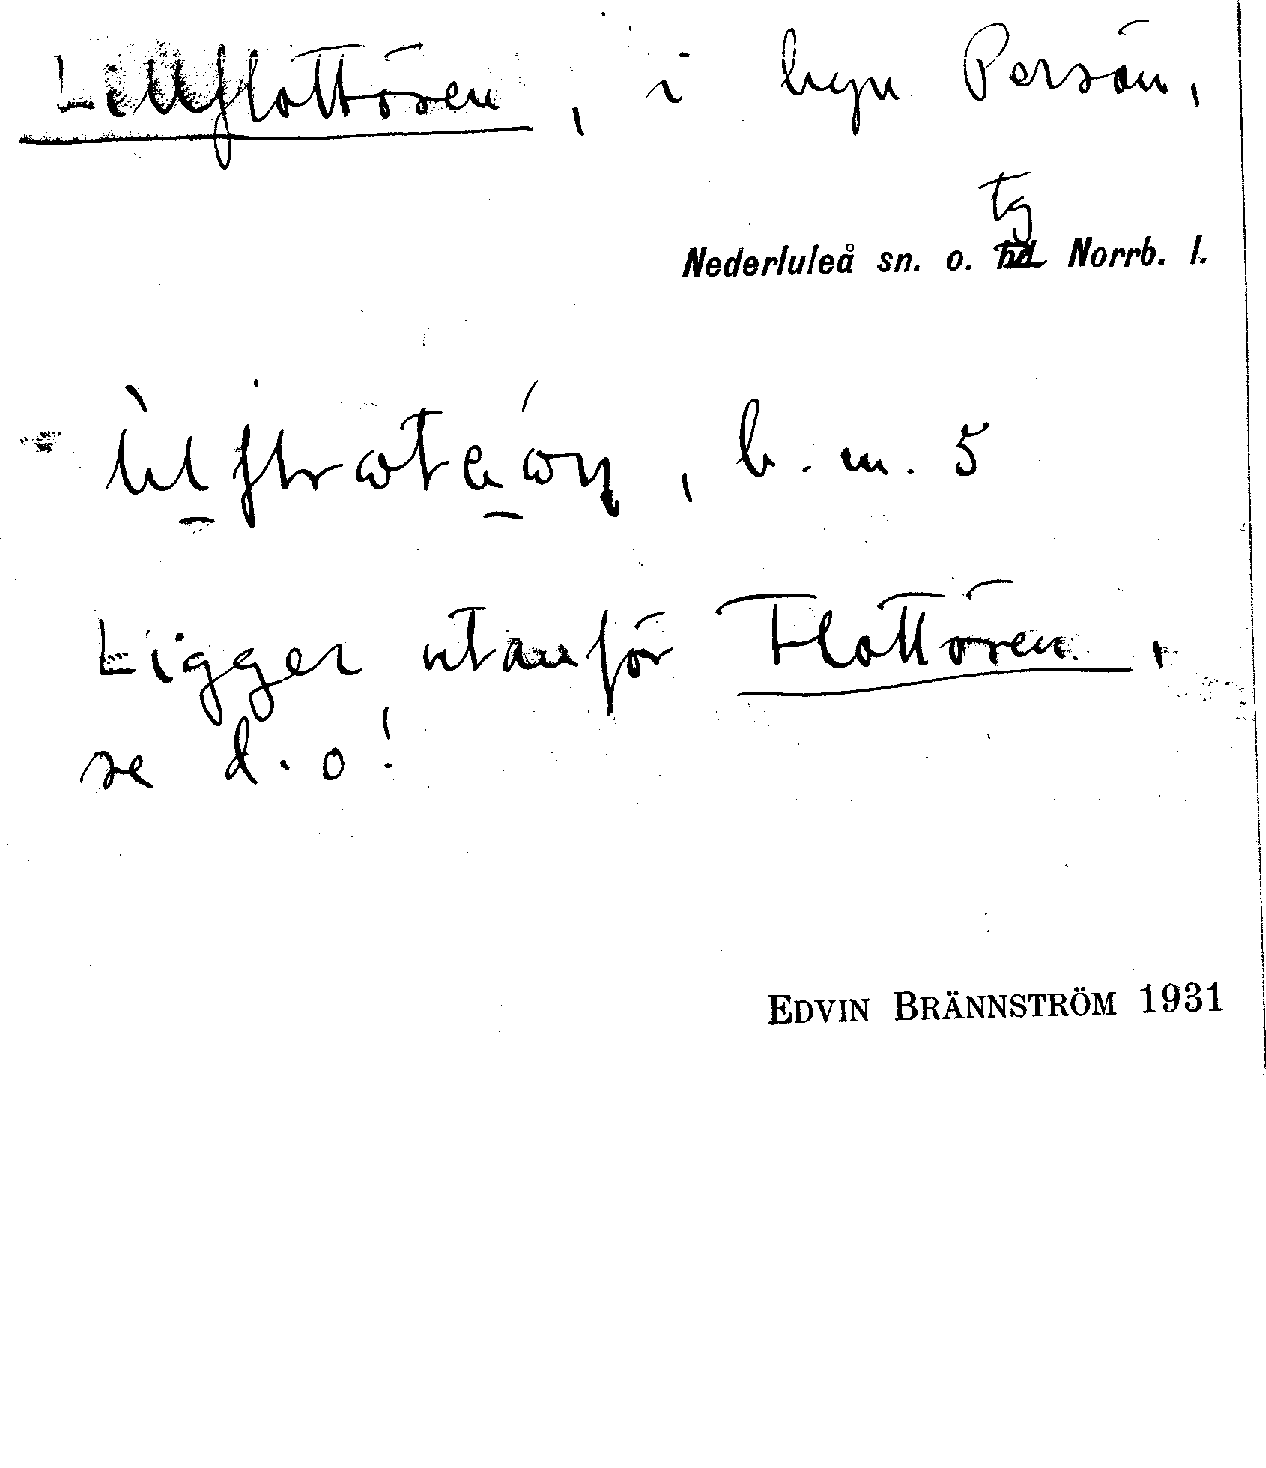 Lillflottören, i byn Persön,
tg
Nederluleå sn. o. hd Norrb. l.
, b. m. 5
Ligger utanför Flottören,
se d. o!
EDVIN BRÄNNSTRÖM 1931